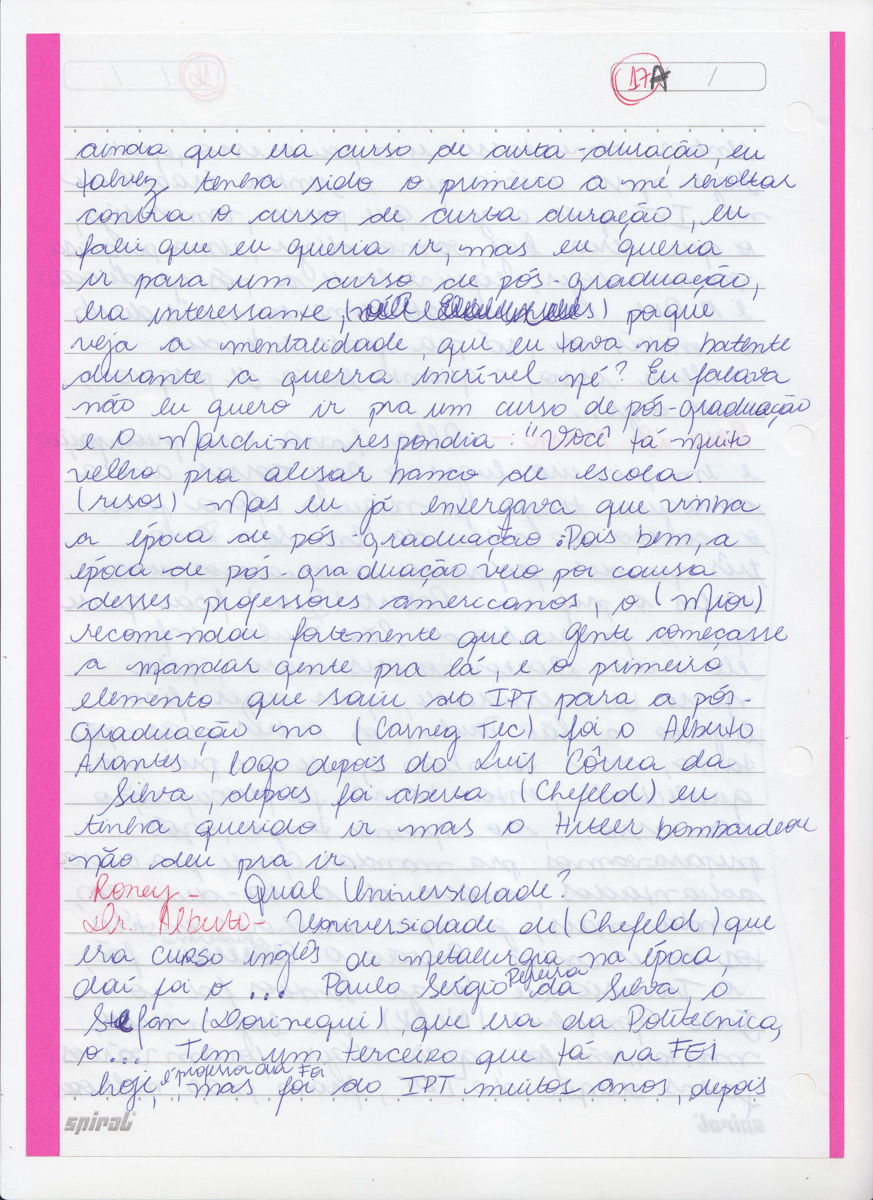 17A /
ainda que era curso de curta-duração, eu
talvez tenha sido o primeiro a me revoltar
contra o curso de curta duração, eu
falei que eu queria ir, mas eu queria
ir para um curso de pós-graduação,
era interessante, porque
veja a mentalidade, que eu tava no batente
durante a guerra incrível né? Eu falava
não eu quero ir pra um curso de pós-graduação
e o Maschini respondia: "Você tá muito
velho pra alisar banco de escola.
(risos) Mas eu já enxergava que vinha
a época de pós-graduação. Pois bem, a
época de pós-graduação veio por causa
desses professores americanos, o (Mior)
recomendou fortemente que a gente começasse
a mandar gente pra lá, e o primeiro
elemento que saiu do IPT para a pós-
graduação no (Carneg Tec) foi o Alberto
Arantes, logo depois do Luis Côrrea da
Silva, depois foi aberta (Chefeld) eu
tinha querido ir mas o Hitler bombardeou
não deu pra ir.
Roney - Qual Universidade?
Dr. Alberto - Universidade de (Chefeld) que
era curso inglês de metalurgia na época,
daí foi o ... Paulo Sérgio Pereira da Silva, o
Stefan (Dorinequi), que era da Politécnica,
o... Tem um terceiro que tá na FEI
hoje, é professor da FEI, mas foi do IPT muitos anos, depois
spiral